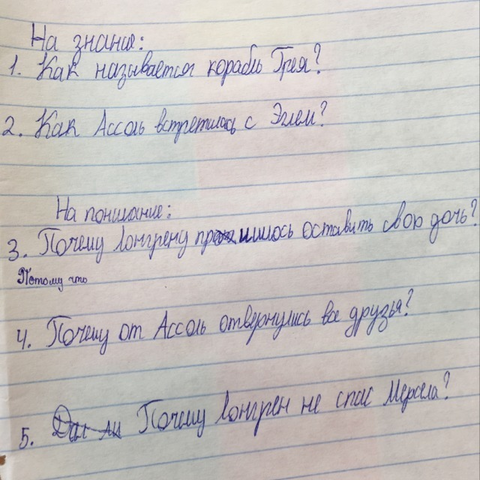 На знание:
1. Как называется корабль Грея?
2. Как Ассоль встретилась с Эглем?
На понимание:
3. Почему Лонгрену пришлось оставить свою дочь?
Потому что
4. Почему от Ассоль отвернулись все друзья?
5. Почему Лонгрен не спас Мерсела?